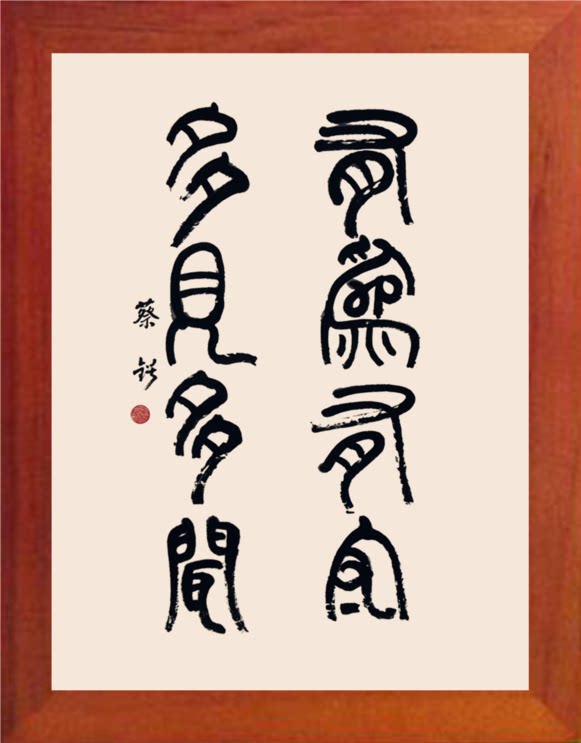 有為有守
多見多聞
蔡鍔